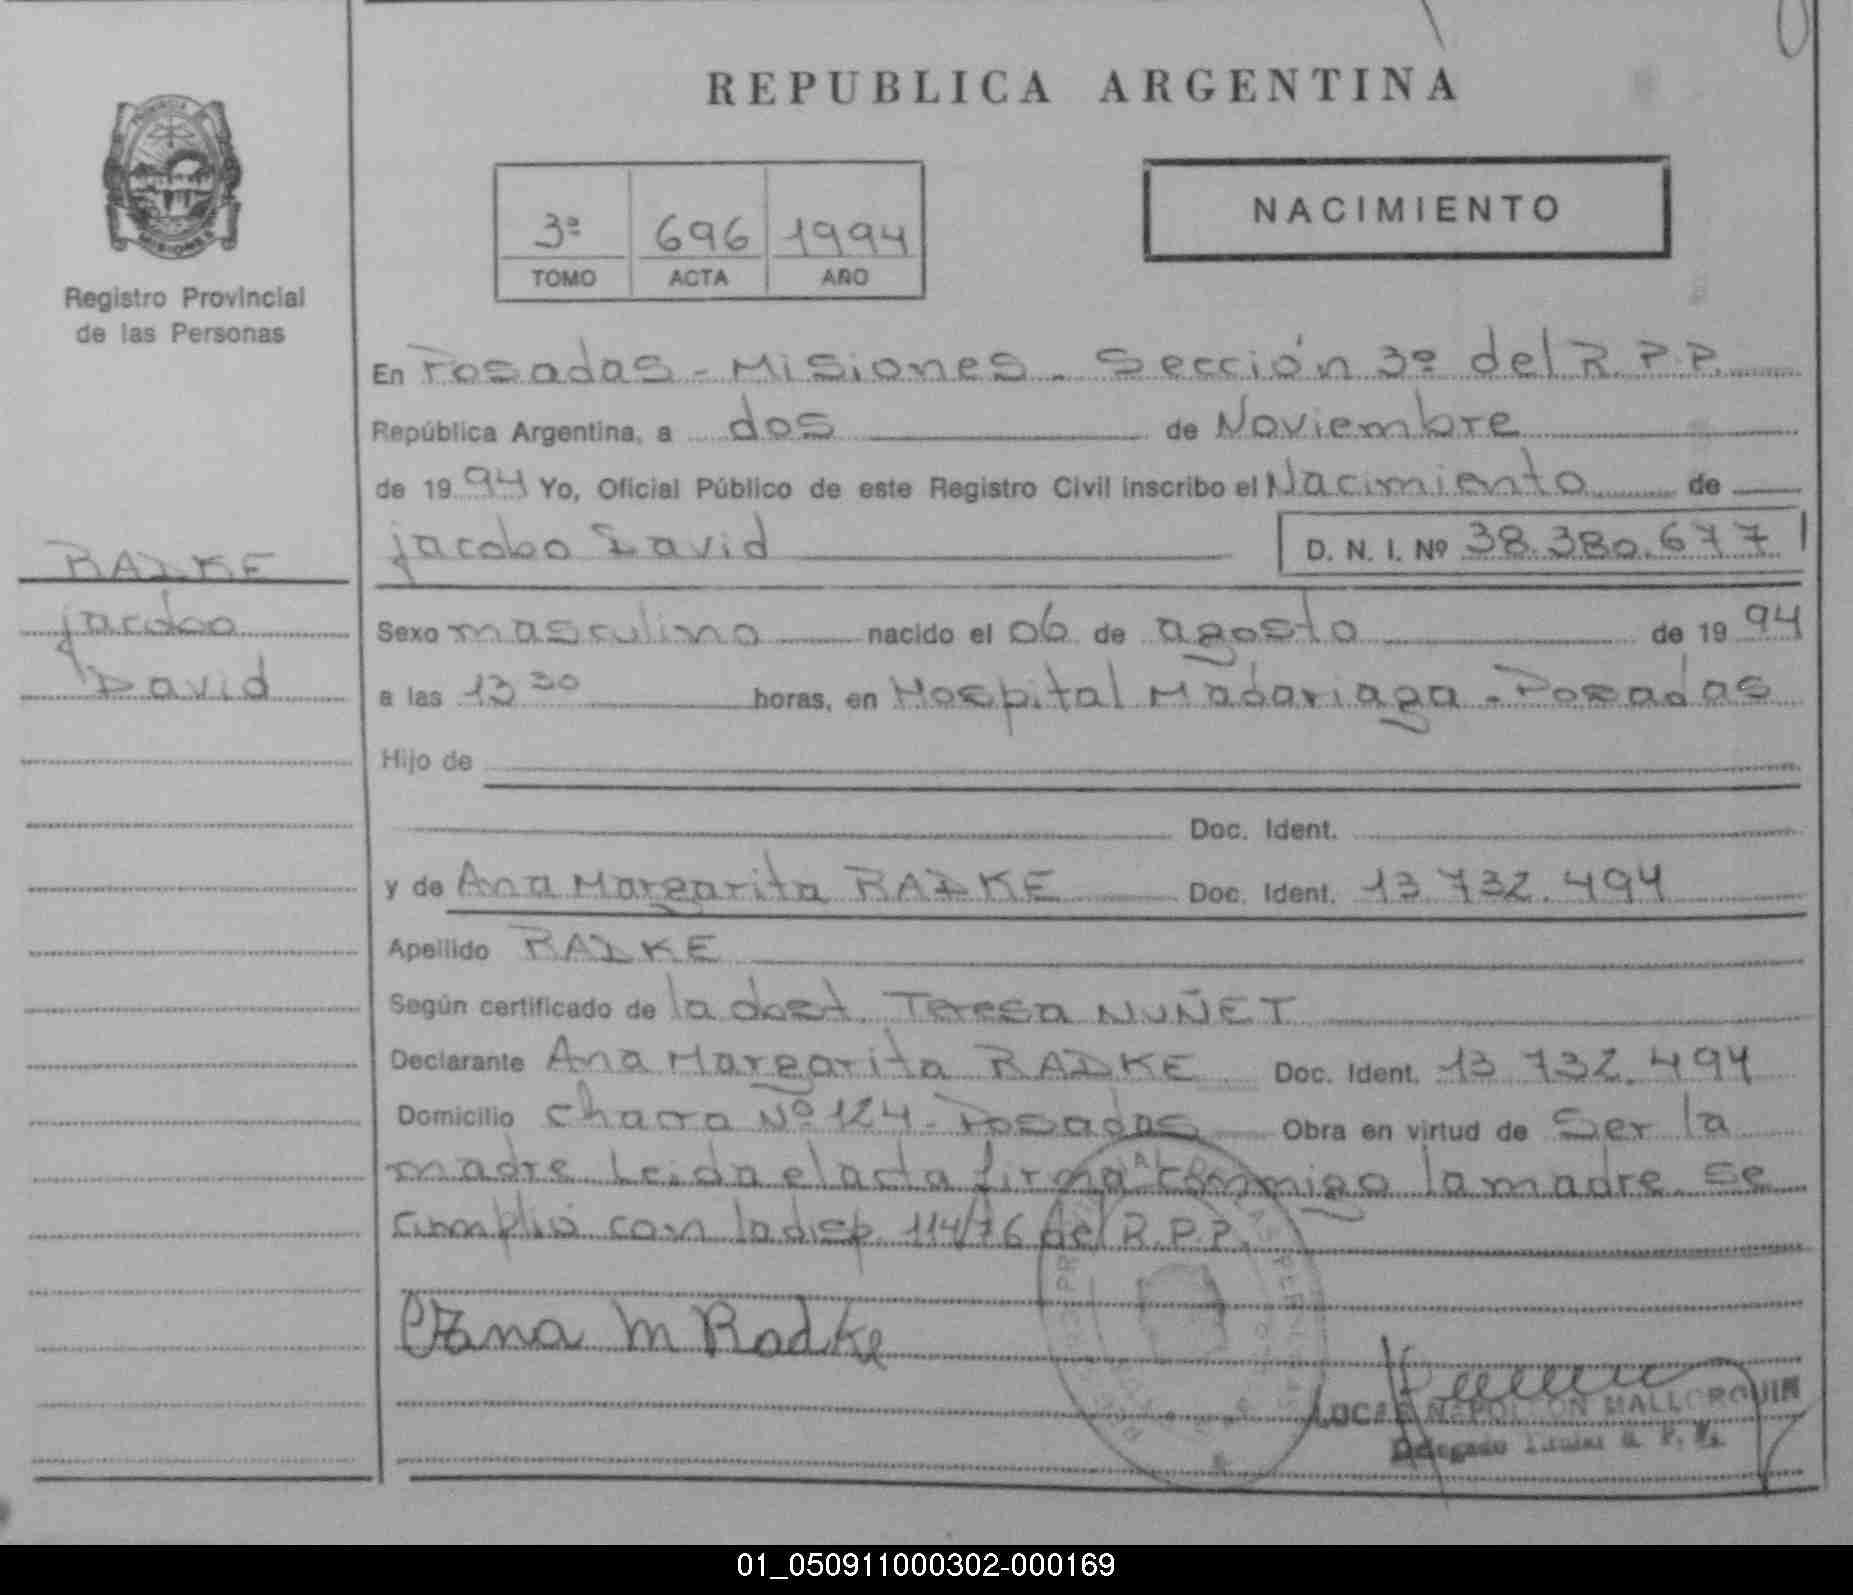 REPUBLICA ARGENTINA
PROVINCIA
MISIONES
Registro Provincial
de las Personas
3ª 696 1994
TOMO ACTA AÑO
NACIMIENTO
En Posadas - Misiones - Sección 3ª del R.P.P.
República Argentina, a dos de Noviembre
de 1994 Yo, Oficial Público de este Registro Civil inscribo el Nacimiento de
jacobo David D. N. I. Nº 38.380.677
RADKE
jacobo
David
Sexo masculino nacido el 06 de agosto de 1994
a las 13 30 horas, en Hospital Madariaga - Posadas
Hijo de
Doc. Ident.
y de Ana Margarita RADKE Doc. Ident. 13 732.494
Apellido RADKE
Según certificado de la obst. Teresa NUÑET
Declarante Ana Margarita RADKE Doc. Ident. 13 732.494
Domicilio Chacra Nº 124 - Posadas Obra en virtud de Ser la
madre Leida el acta firma conmigo la madre. Se
cumplió con la disp. 114/76 del R.P.P.
Ana M Radke
LUCAS NAPOLEON MALLORQUIN
Delegado
01_050911000302-000169